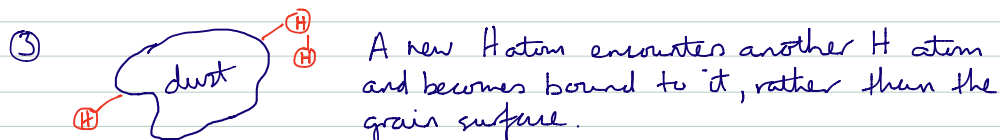 ③ H
H
A new H atom encounters another H atom
dust
and becomes bound to it, rather than the
H
grain surface.